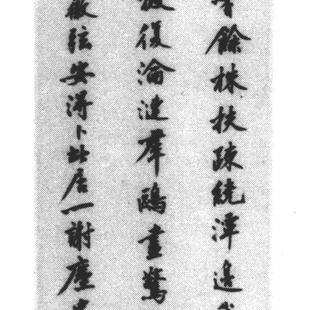 餘株扶疎繞潭邊
復淪漣群鷗晝驚
弦安得卜此居一謝塵